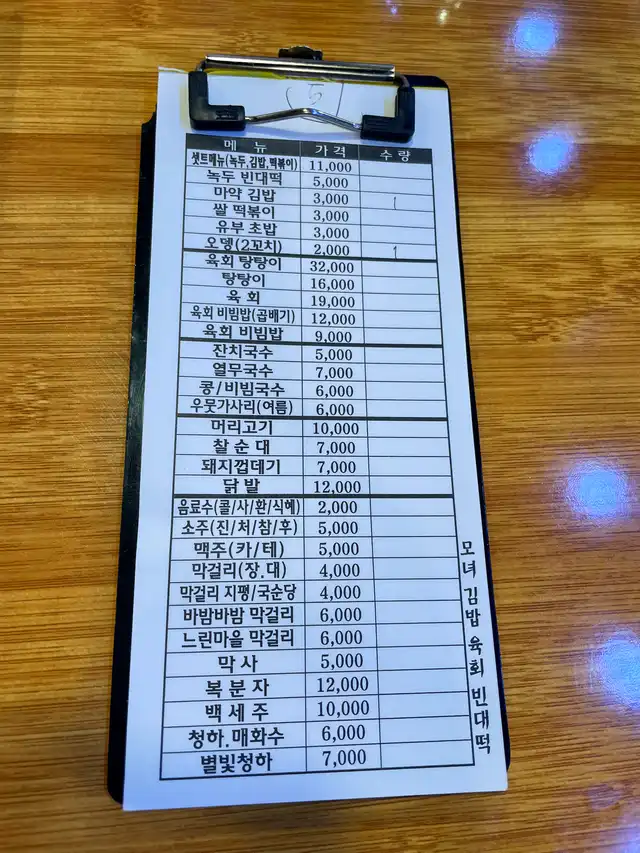 5
메뉴 가격 수량
셋트메뉴(녹두,김밥,떡볶이) 11,000
녹두 빈대떡 5,000
마약 김밥 3,000 1
쌀 떡볶이 3,000
유부 초밥 3,000
오뎅(2꼬치) 2,000 1
육회 탕탕이 32,000
탕탕이 16,000
육 회 19,000
육회 비빔밥(곱배기) 12,000
육회 비빔밥 9,000
잔치국수 5,000
열무국수 7,000
콩/비빔국수 6,000
우뭇가사리(여름) 6,000
머리고기 10,000
찰 순 대 7,000
돼지껍데기 7,000
닭 발 12,000
음료수(콜/사/환/식혜) 2,000
소주(진/처/참/후) 5,000
맥주(카/테) 5,000
막걸리(장.대) 4,000
막걸리 지평/국순당 4,000
바밤바밤 막걸리 6,000
느린마을 막걸리 6,000
막 사 5,000
복 분 자 12,000
백 세 주 10,000
청하.매화수 6,000
별빛청하 7,000
모녀 김밥 육회 빈대떡